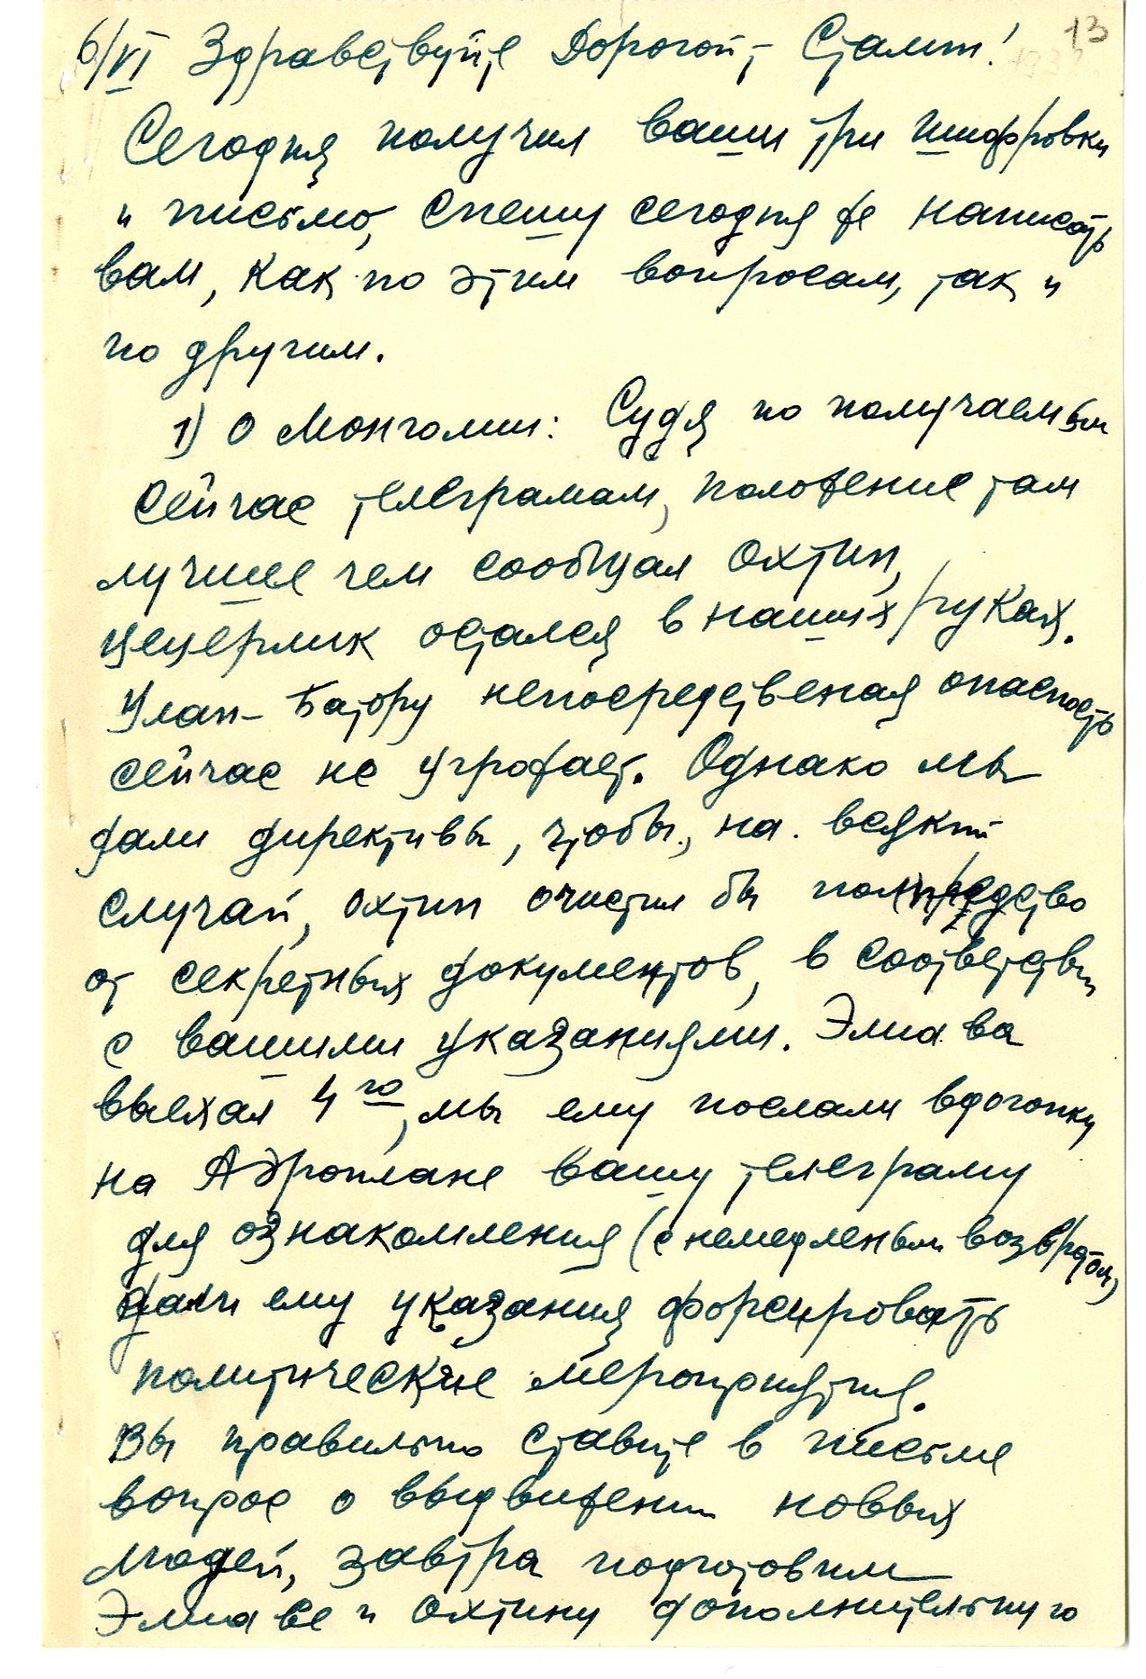 13
6/VI Здравствуйте Дорогой т Сталин!
Сегодня получил ваши три шифровки
и письмо, спешу сегодня же написать
вам, как по этим вопросам, так и
по другим.
1) О Монголии: Судя по получаемым
сейчас телеграмам, положение там
лучшее чем сообщал Охтин,
Цецерлик остался в наших руках.
Улан-Батору непосредственая опасность
сейчас не угрожает. Однако мы
дали директивы, чтобы, на всякий
случай, Охтин очистил бы полпредство
от секретных документов, в соответствии
с вашими указаниями. Элиава
выехал 4го, мы ему послали вдогонку
на Аэроплане вашу телеграму
для ознакомления (с немедленым возвратом)
дали ему указания форсировать
политические мероприятия.
Вы правильно ставите в письме
вопрос о выдвижении новых
людей, завтра подготовим
Элиаве и Охтину дополнительную